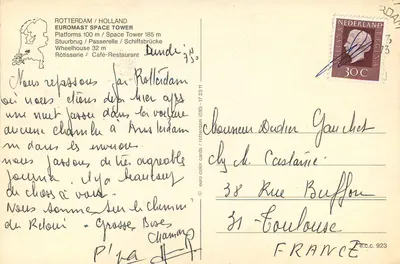 ROTTERDAM / HOLLAND
EUROMAST SPACE TOWER
Platforms 100 m / Space Tower 185 m
Stuurbrug / Passerelle / Schiffsbrücke
Wheelhouse 32 m
Rôtisserie / Café-Restaurant
Nous repassons par Rotterdam
où nous étions déjà hier après
une nuit passée dans la voiture
aucune chambre à Amsterdam
ni dans les environs
nous passons de très agréable
journée. Il y a beaucoup
de choses à voir.
Nous sommes sur le chemin
du Retour. Grosses Bises
© euro color cards / rotterdam
NEDERLAND
30 C
Monsieur Didier Gauchet
chez M. Castaine
38 Rue Buffon
31 - Toulouse
FRANCE
e.c.c. 923